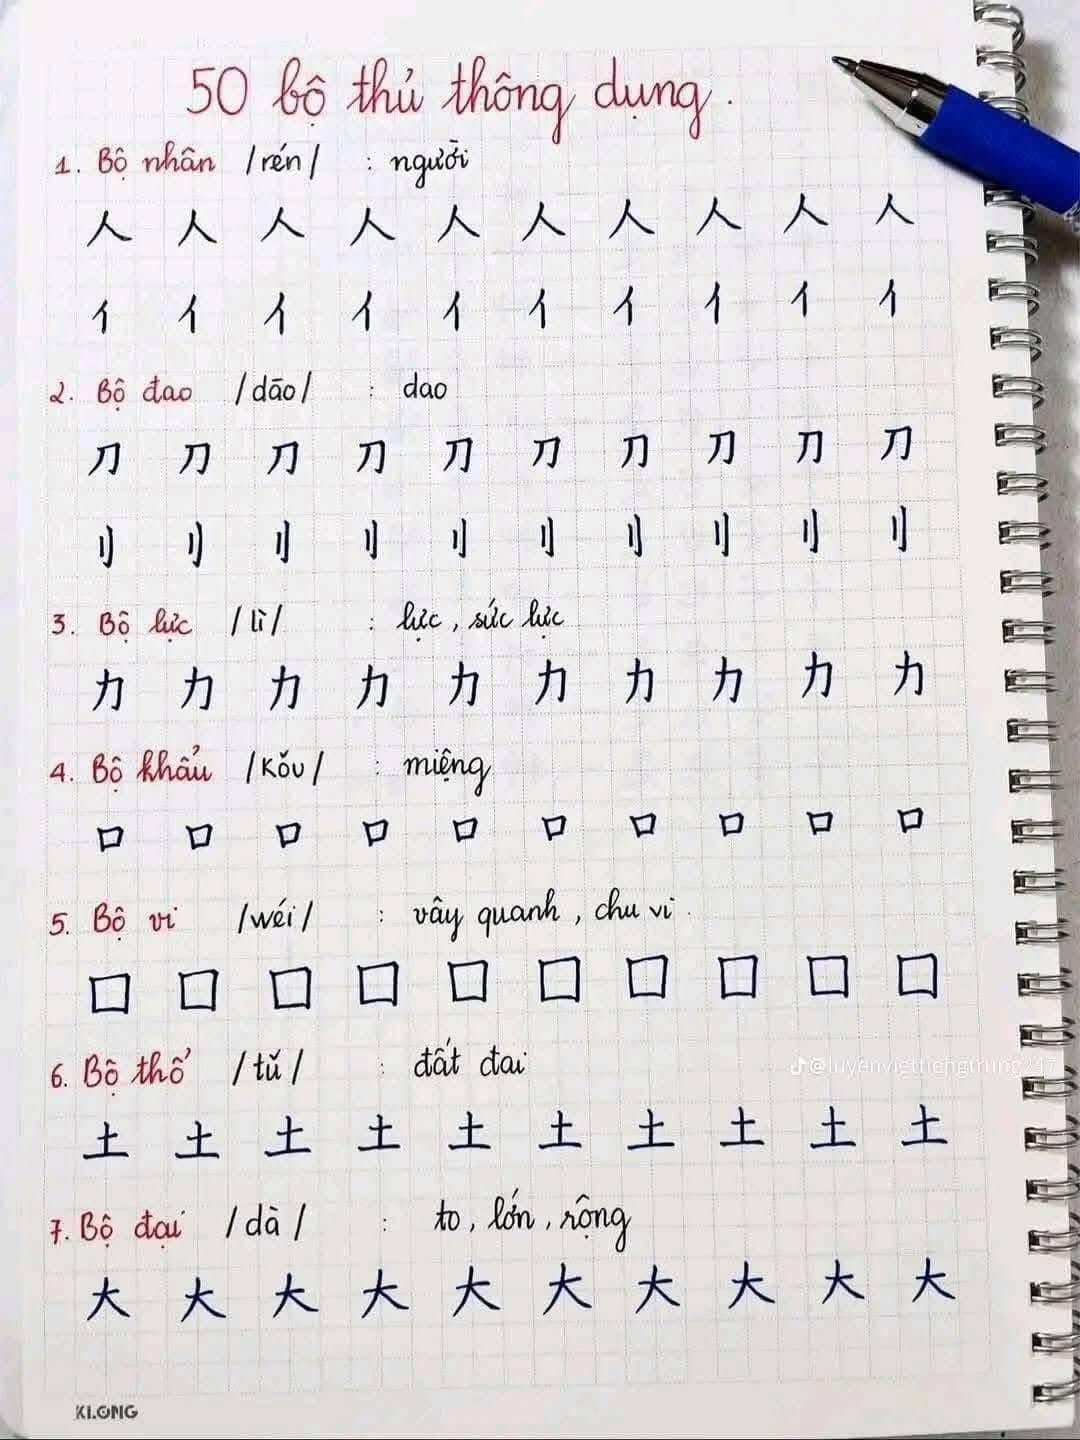 50 bộ thủ thông dụng.
1. Bộ nhân /rén/ : người
人 人 人 人 人 人 人 人 人 人
亻 亻 亻 亻 亻 亻 亻 亻 亻 亻
2. Bộ đao /dāo/ : dao
刀 刀 刀 刀 刀 刀 刀 刀 刀 刀
刂 刂 刂 刂 刂 刂 刂 刂 刂 刂
3. Bộ lực /lì/ : lực, sức lực
力 力 力 力 力 力 力 力 力 力
4. Bộ khẩu /kǒu/ : miệng
口 口 口 口 口 口 口 口 口 口
5. Bộ vi /wéi/ : vây quanh, chu vi.
囗 囗 囗 囗 囗 囗 囗 囗 囗 囗
6. Bộ thổ /tǔ/ : đất đai
土 土 土 土 土 土 土 土 土 土
7. Bộ đại /dà/ : to, lớn, rộng
大 大 大 大 大 大 大 大 大 大
KLONG